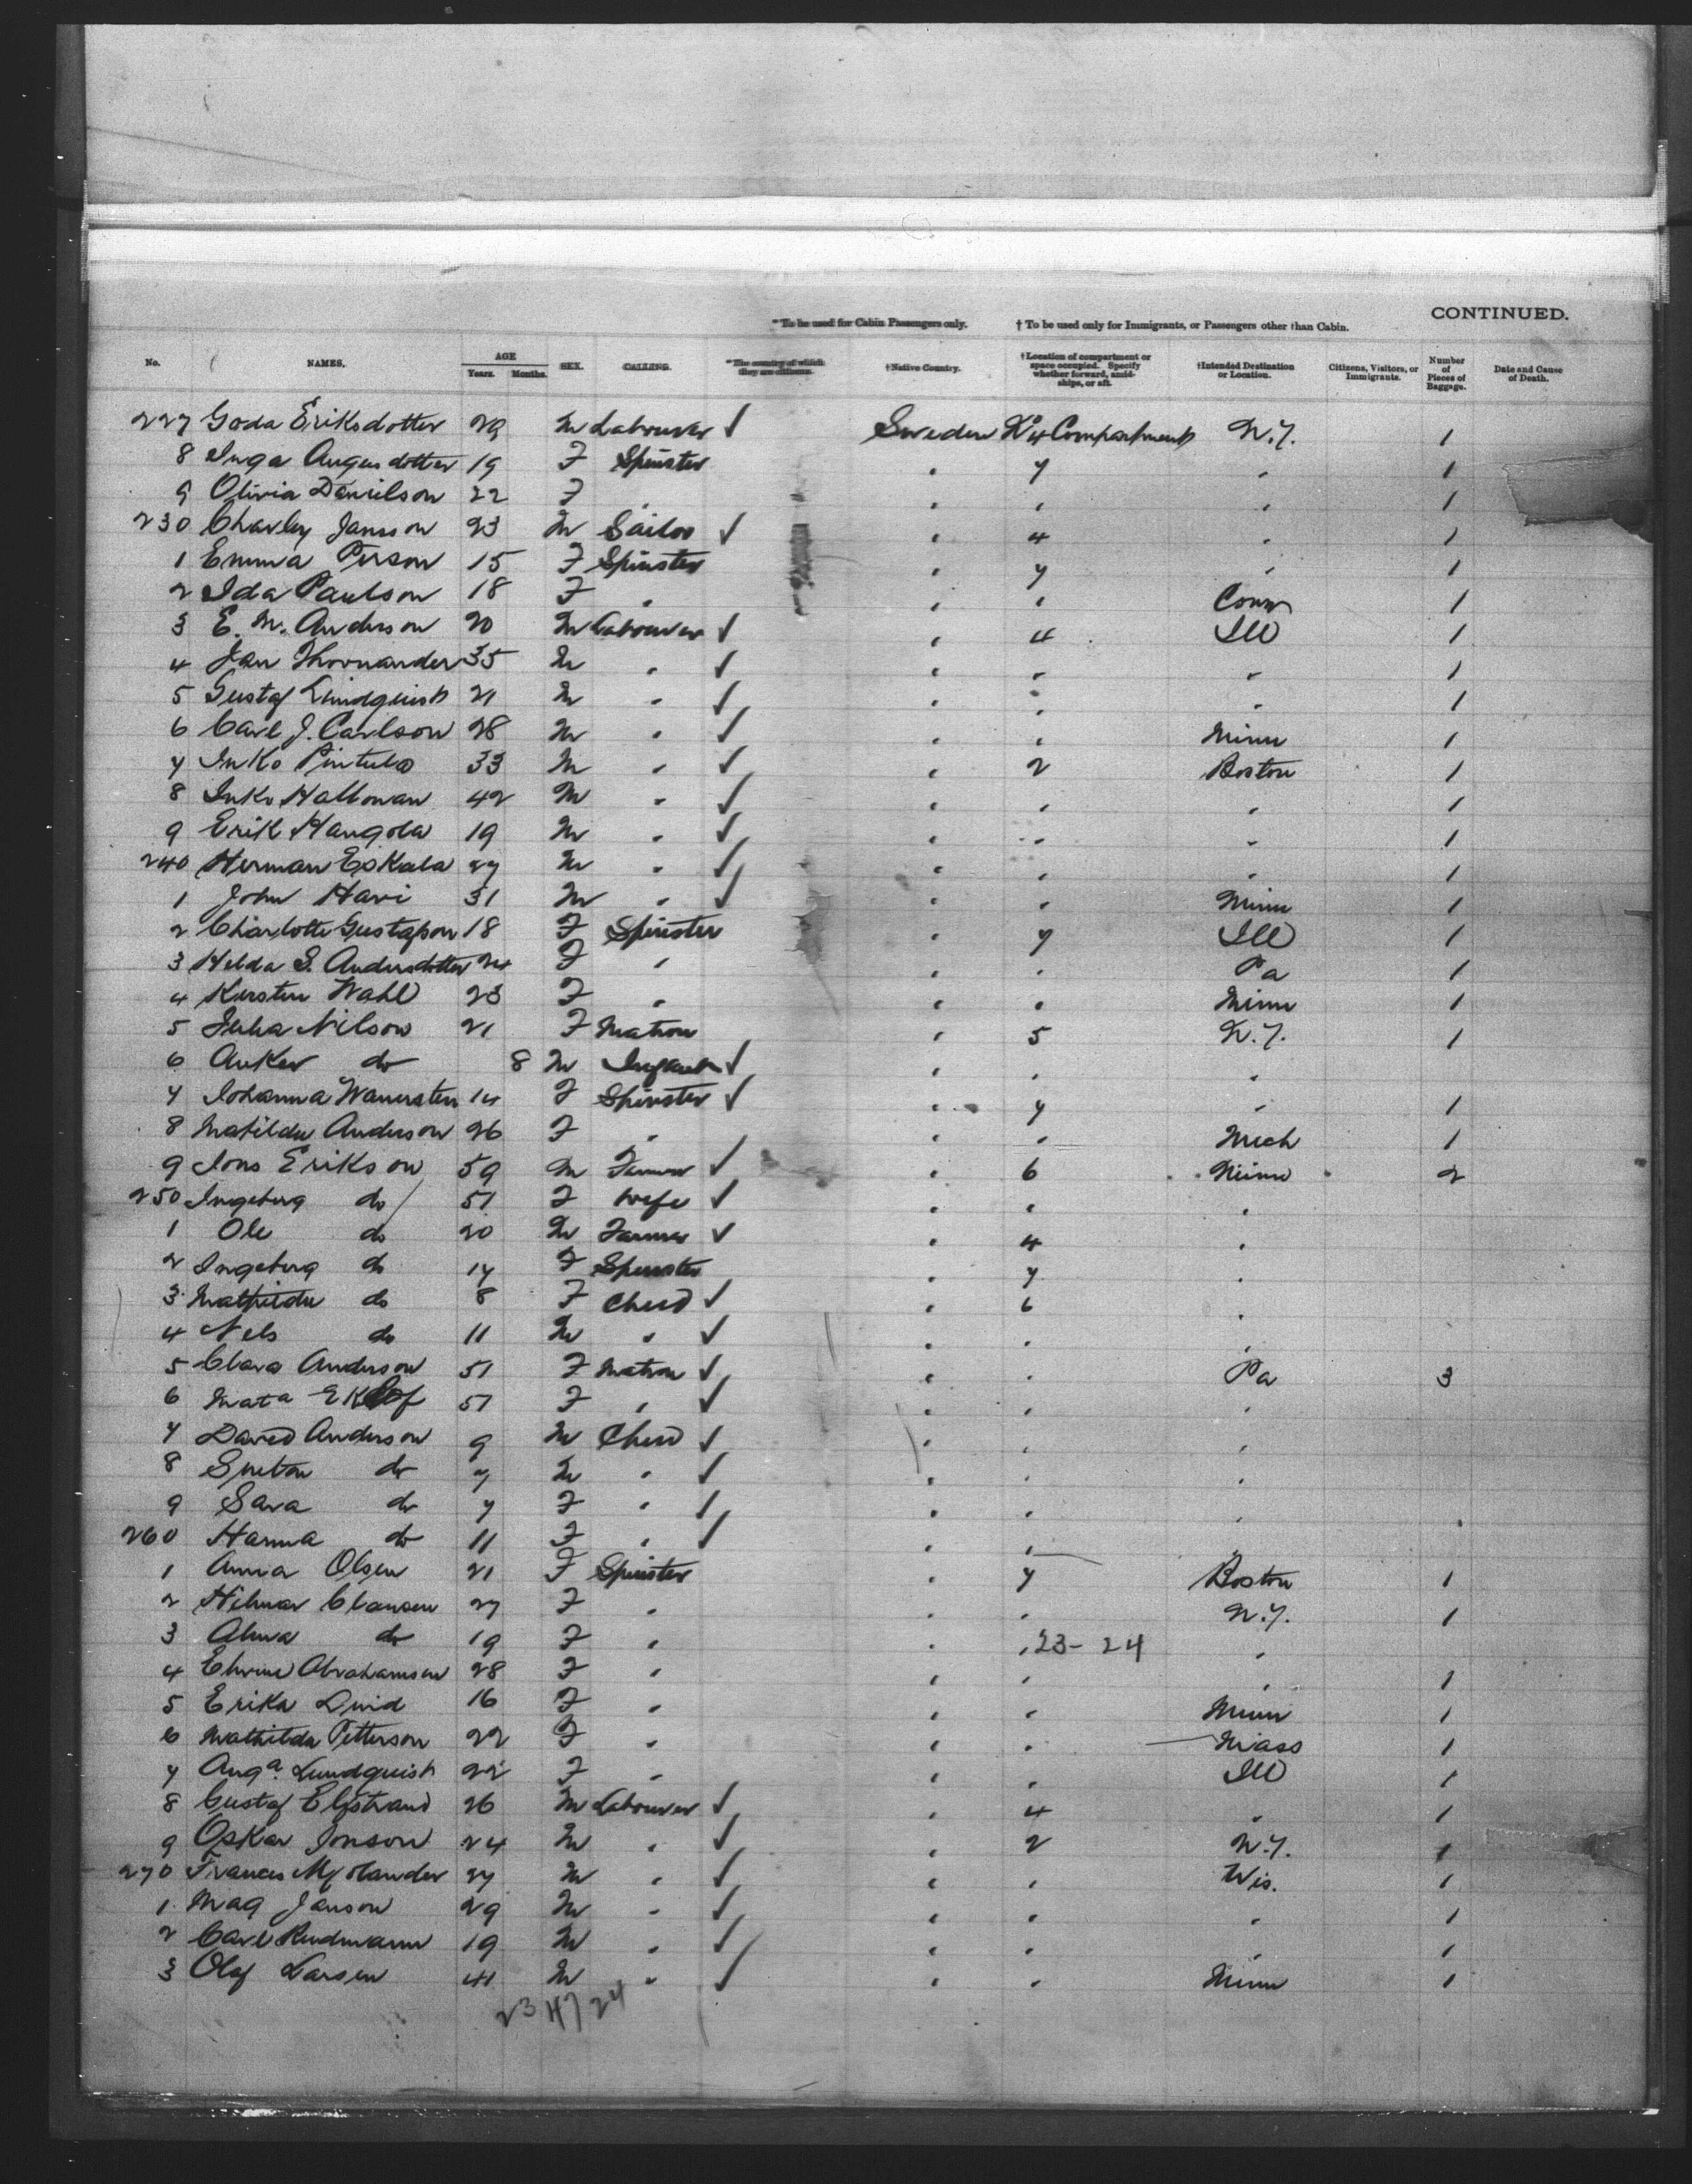 CONTINUED.
*To be used for Cabin Passengers only. † To be used only for Immigrants, or Passengers other than Cabin.
No. NAMES. AGE Years. Months. SEX. CALLING. *The country of which they are citizens. †Native Country. †Location of compartment or space occupied. Specify whether forward, amidships, or aft. †Intended Destination or Location. Citizens, Visitors, or Immigrants. Number of Pieces of Baggage. Date and Cause of Death.
227 Goda Eriksdotter 29 M Labourer ✓ Sweden No 4 Compartment N.Y. 1
8 Inga Augusdotter 19 F Spinster " 7 " 1
9 Olivia Danielson 22 F " " " " 1
230 Charley Jansson 23 M Sailor ✓ " 4 " 1
1 Emma Person 15 F Spinster " 7 " 1
2 Ida Paulson 18 F " " " Conn 1
3 E. M. Anderson 20 M Labourer ✓ " 4 Ill 1
4 Jan Thornander 35 M " ✓ " " " 1
5 Gustaf Lindquist 21 M " ✓ " " " 1
6 Carl J. Carlson 28 M " ✓ " " Minn 1
7 Inko Pintula 33 M " ✓ " 2 Boston 1
8 Inko Hallowan 42 M " ✓ " " " 1
9 Erik Hangola 19 M " ✓ " " " 1
240 Herman Eskala 27 M " ✓ " " " 1
1 John Hari 31 M " ✓ " " Minn 1
2 Charlotte Gustafson 18 F Spinster " 7 Ill 1
3 Helda S. Andersdotter 24 F " " " Pa 1
4 Kersten Wahl 23 F " " " Minn 1
5 Julia Nilson 21 F Matron " 5 N.Y. 1
6 Anker do 8 M Infant ✓ " " "
7 Johanna 14 F Spinster ✓ " 7 " 1
8 Matilda Anderson 26 F " " " Mich 1
9 Jons Erikson 59 M Farmer ✓ " 6 Minn 2
250 Ingeborg do 51 F Wife ✓ " " "
1 Ole do 20 M Farmer ✓ " 4 "
2 Ingeborg do 17 F Spinster " 7 "
3 Mathilda do 8 F Child ✓ " 6 "
4 Nels do 11 M " ✓ " " "
5 Clara Anderson 51 F Matron ✓ " " Pa 3
6 Mata Eklof 51 F " ✓ " " "
7 David Anderson 9 M Child ✓ " " "
8 do 7 M " ✓ " " "
9 Sara do 7 F " ✓ " " "
260 Hanna do 11 F " ✓ " " "
1 Anna Olsen 21 F Spinster " 7 Boston 1
2 Hilmar Clausen 27 F " " " N.Y. 1
3 Alma do 19 F " " " 23-24 "
4 Abrahamsen 28 F " " " " 1
5 Erika 16 F " " " Minn 1
6 Mathilda Petterson 22 F " " " Mass 1
7 Auga. Lundquist 22 F " " " Ill 1
8 Gustaf Elfstrand 26 M Labourer ✓ " 4 " 1
9 Oskar Jonson 24 M " ✓ " 2 N.Y. 1
270 Frances 27 M " ✓ " " Wis. 1
1 Mag Janson 29 M " ✓ " " " 1
2 Carl Rudmann 19 M " ✓ " " " 1
3 Olof Larsen 41 M " ✓ " " Minn 1
23 47 24